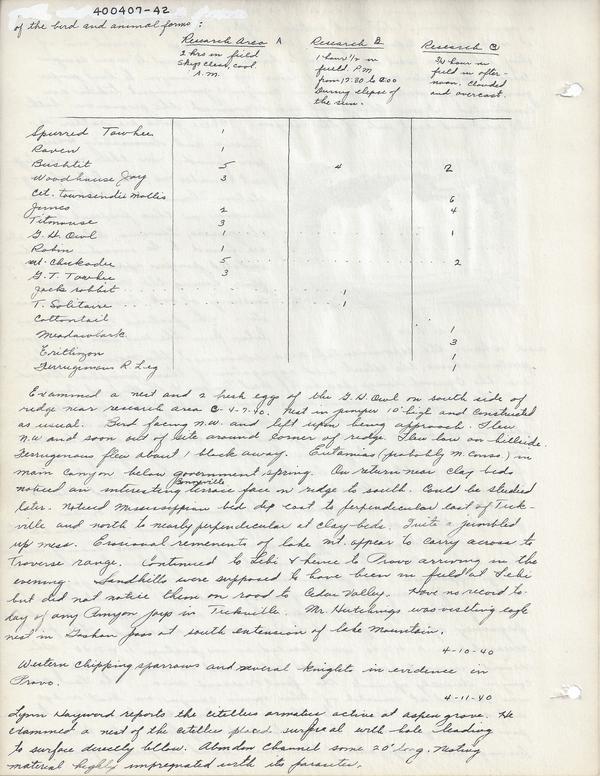 400407-42
of the bird and animal forms:
Research Area A Research B Research C
2 hrs in field 1 hour 1/2 in 3/4 hour in
Sky clear, cool. field P.M. field in after-
A.M. from 12:30 to 2:00 noon. Clouded
During elapse of and overcast.
the sun.
Spurred Towhee 1
Raven 1
Bushtit 5 4 2
Woodhouse Jay 3
Cit. townsendii mollis 6
Juncos 2 4
Titmouse 3
G. H. Owl 1 1
Robin 1
Mt. Chickadee 5 2
G. T. Towhee 3
Jack rabbit 1
T. Solitaire 1
Cottontail 1
Meadowlark 3
Erithizon 1
Ferruginous R. Leg 1
Examined a nest and 2 fresh eggs of the G. H. Owl on south side of
ridge near research area C 4-7-40. Nest in juniper 10' high and constructed
as usual. Bird facing N.W. and left upon being approach. Flew
N.W and soon out of site around corner of ridge. Flew low on hillside.
Ferruginous flew about 1 block away. Eutamias (probably M. Conso.) in
main canyon below government spring. On return near clay beds
noticed an interesting Bonneville terrace face on ridge to south. Could be studied
later. Noticed Mississippian bed dip east to perpendicular east of Tick-
ville and north to nearly perpendicular at clay beds. Quite a jumbled
up mess. Erosional remenents of lake mt. appear to carry across to
Traverse range. Continued to Lehi & hence to Provo arriving in the
evening. Sandhills were supposed to have been in field at Lehi
but did not notice them on road to Cedar Valley. Have no record to-
day of any Pinyon Jays in Tickville. Mr. Hutchings was visiting eagle
nest in Goshen pass at south extension of lake Mountain.
4-10-40
Western Chipping sparrows and several kinglets in evidence in
Provo.
4-11-40
Lynn Hayward reports the citellus armatus active at aspen grove. He
examined a nest of the citellus placed surfical with hole leading
to surface directly bellow. Channel some 20' long. Nesting
material highly impregnated with its parasites.